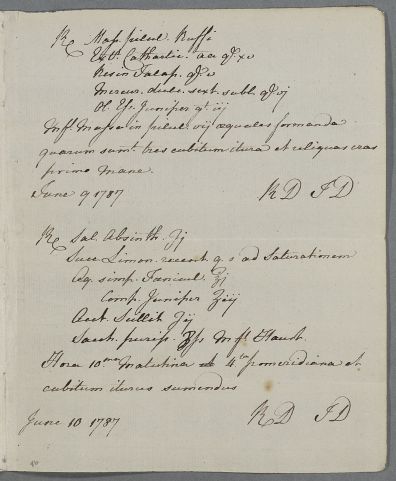 ℞ Mass. pilul. Ruffi
Extr. Cathartic. aa gr. xv
Resin Jalap. gr. v
Mercur. dulc. sext. subl. gr. vj
Ol. Ess. Juniper gt. iij
M ft. Massa in pilul. vij æquales formanda
quarum sumt. tres cubitum itura et reliquas cras
primo mane.
June 9 1787 RD JD
℞ Sal. Absinth. ʒj
Succ. Limon. recent. q. s. ad Saturationem
Aq. simp. Fœnicul. ℥j
Comp. Juniper ʒiij
Acet. Scillit ʒij
Sacch. puriss. ʒſs M ft. Haust.
Hora 10ma Matutina et 4ta pomeridiana et
cubitum iturus sumendus
June 10 1787 RD JD